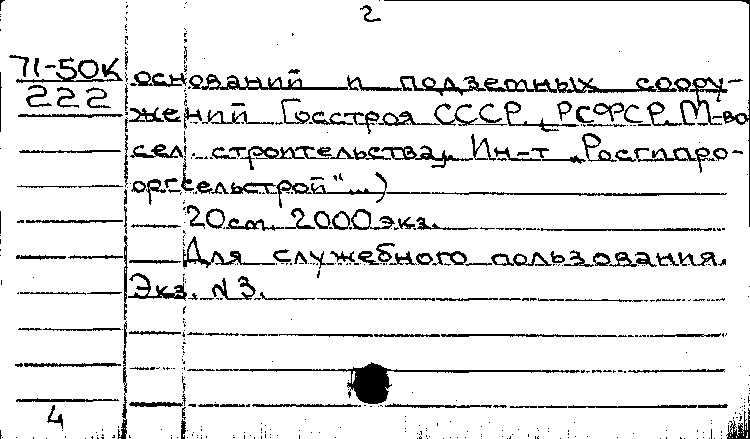 2
71-50К
222
оснований и подземных соору-
жений Госстроя СССР. РСФСР. М-во
сел. строительства, Ин-т „Росгипро-
оргсельстрой"...)
20 см. 2000 экз.
Для служебного пользования.
Экз. N 3.
4